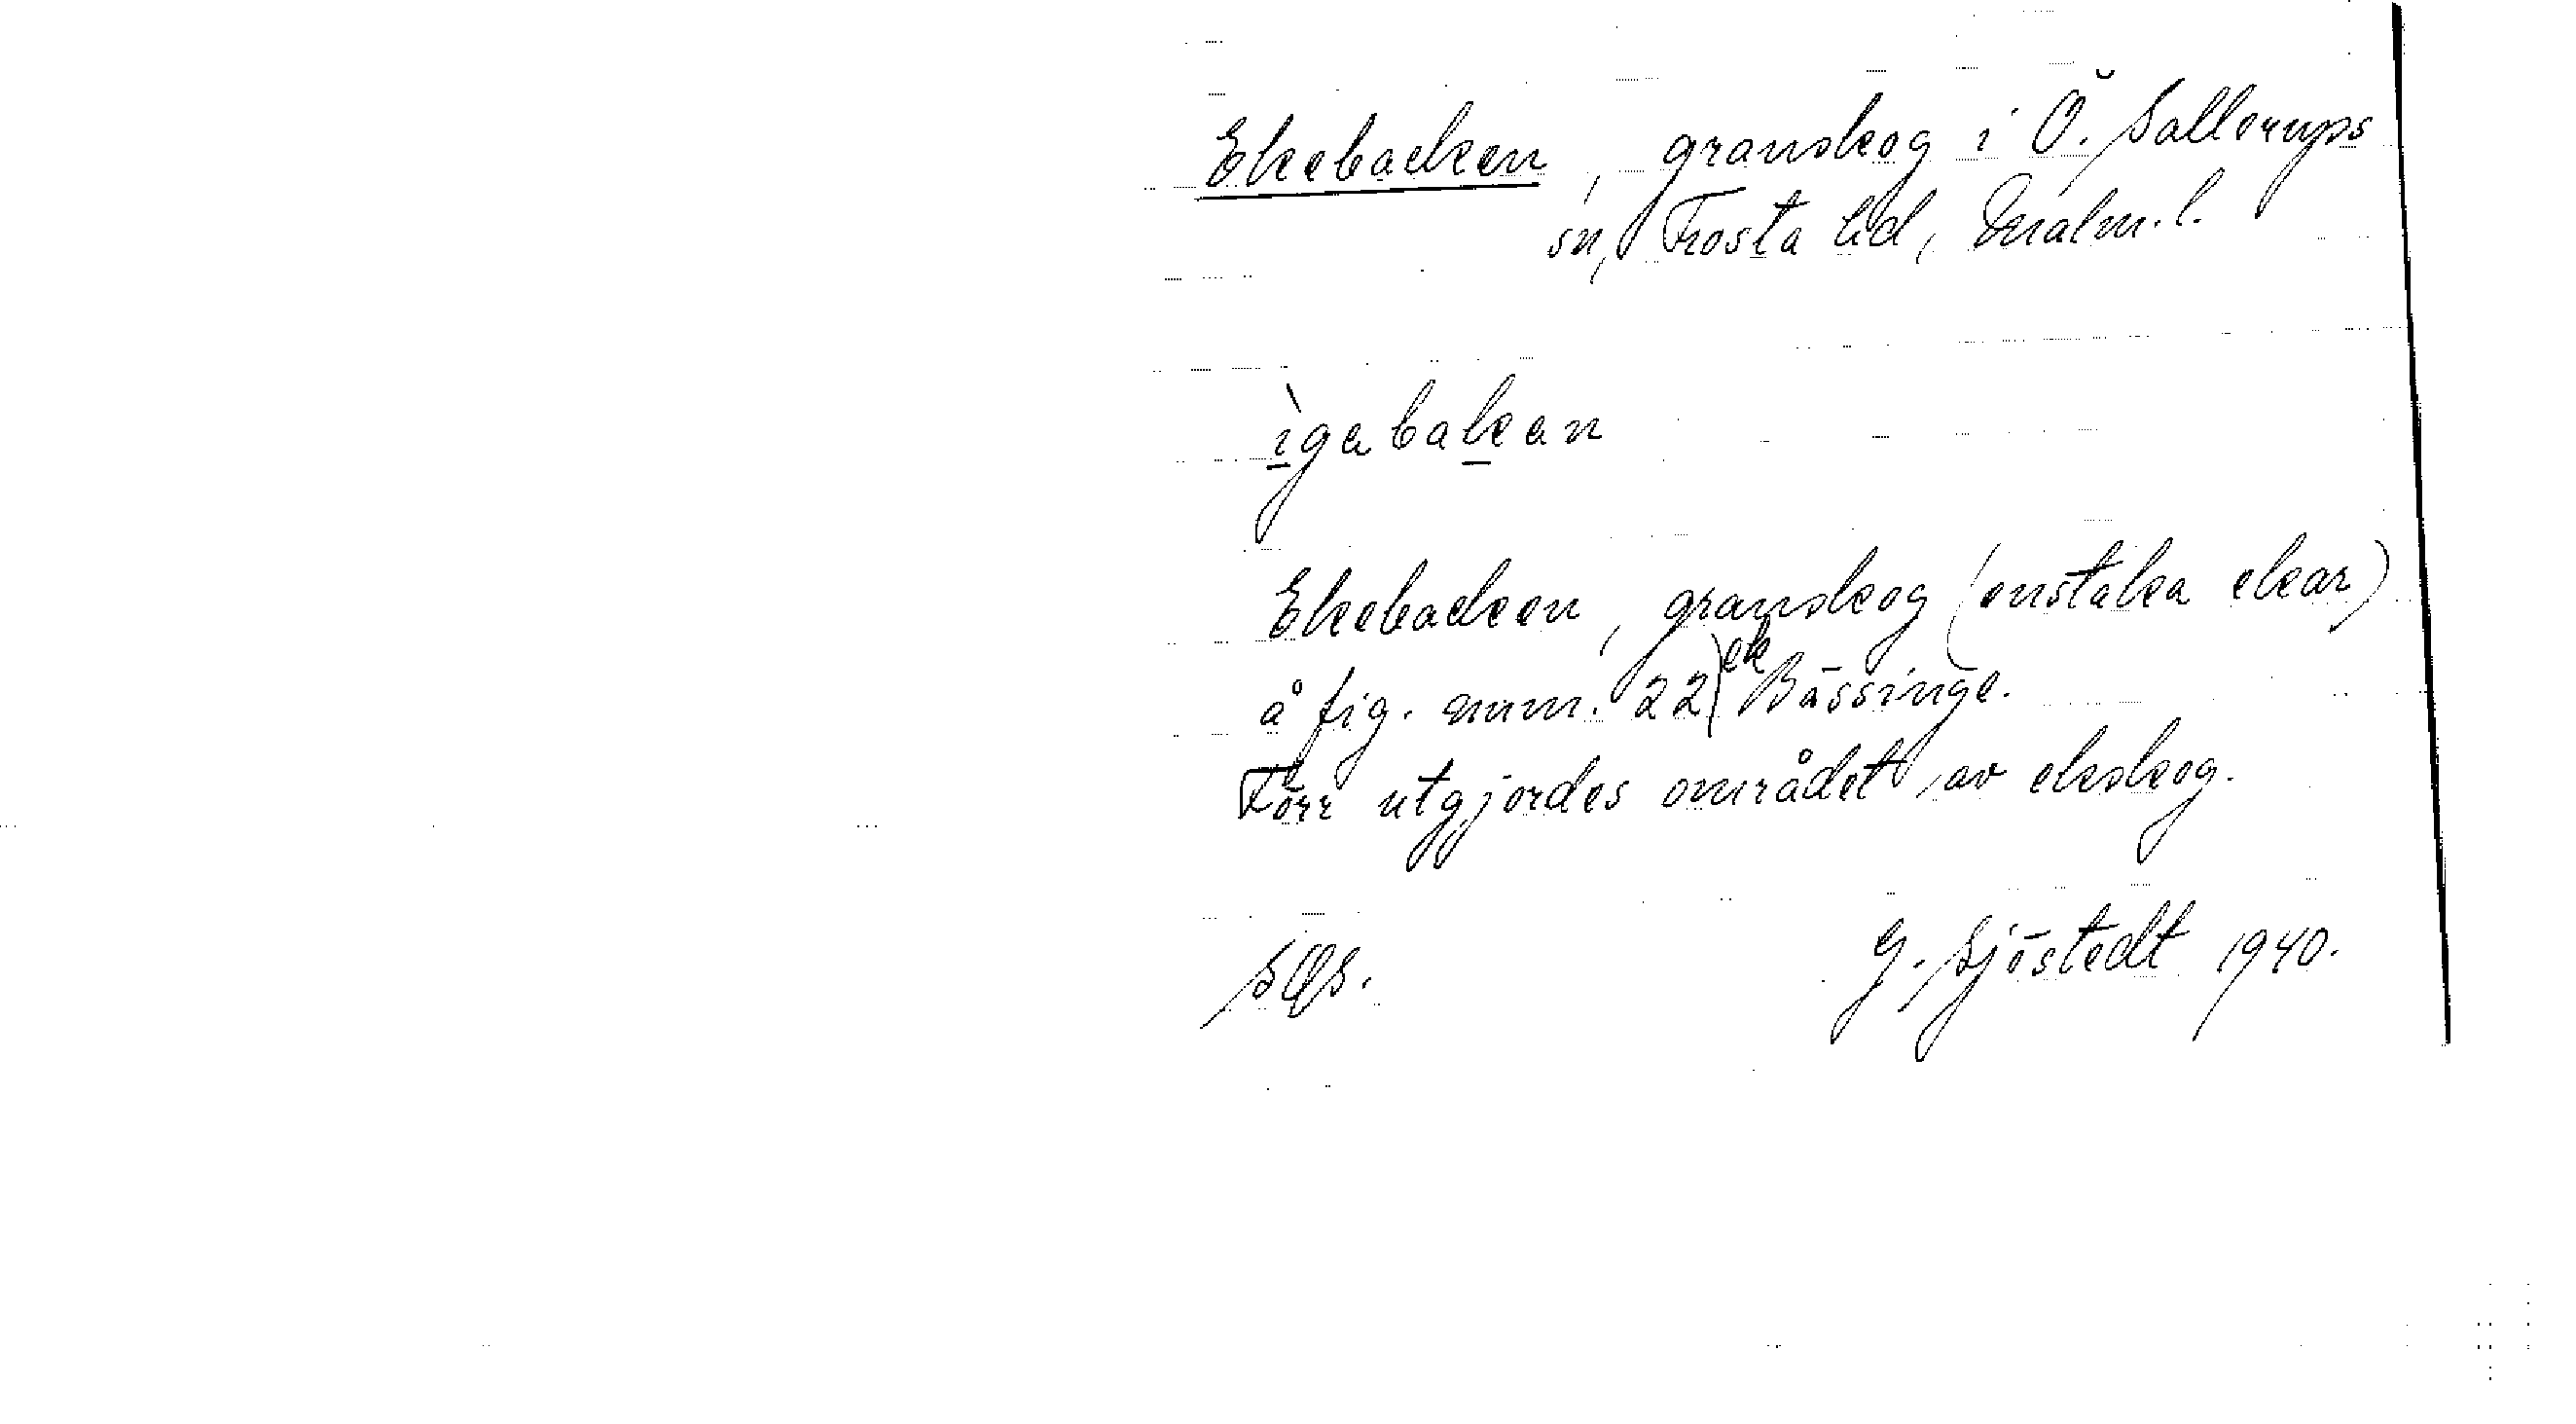 Ekebacken, granskog i Ö. Sallerups
sn, Frosta hd, Malm. l.
ìgabakan
Ekebacken, granskog (enstaka ekar)
å fig. num. 22 ek Bässinge.
Förr utgjordes området av ekskog.
G. Sjöstedt 1940.